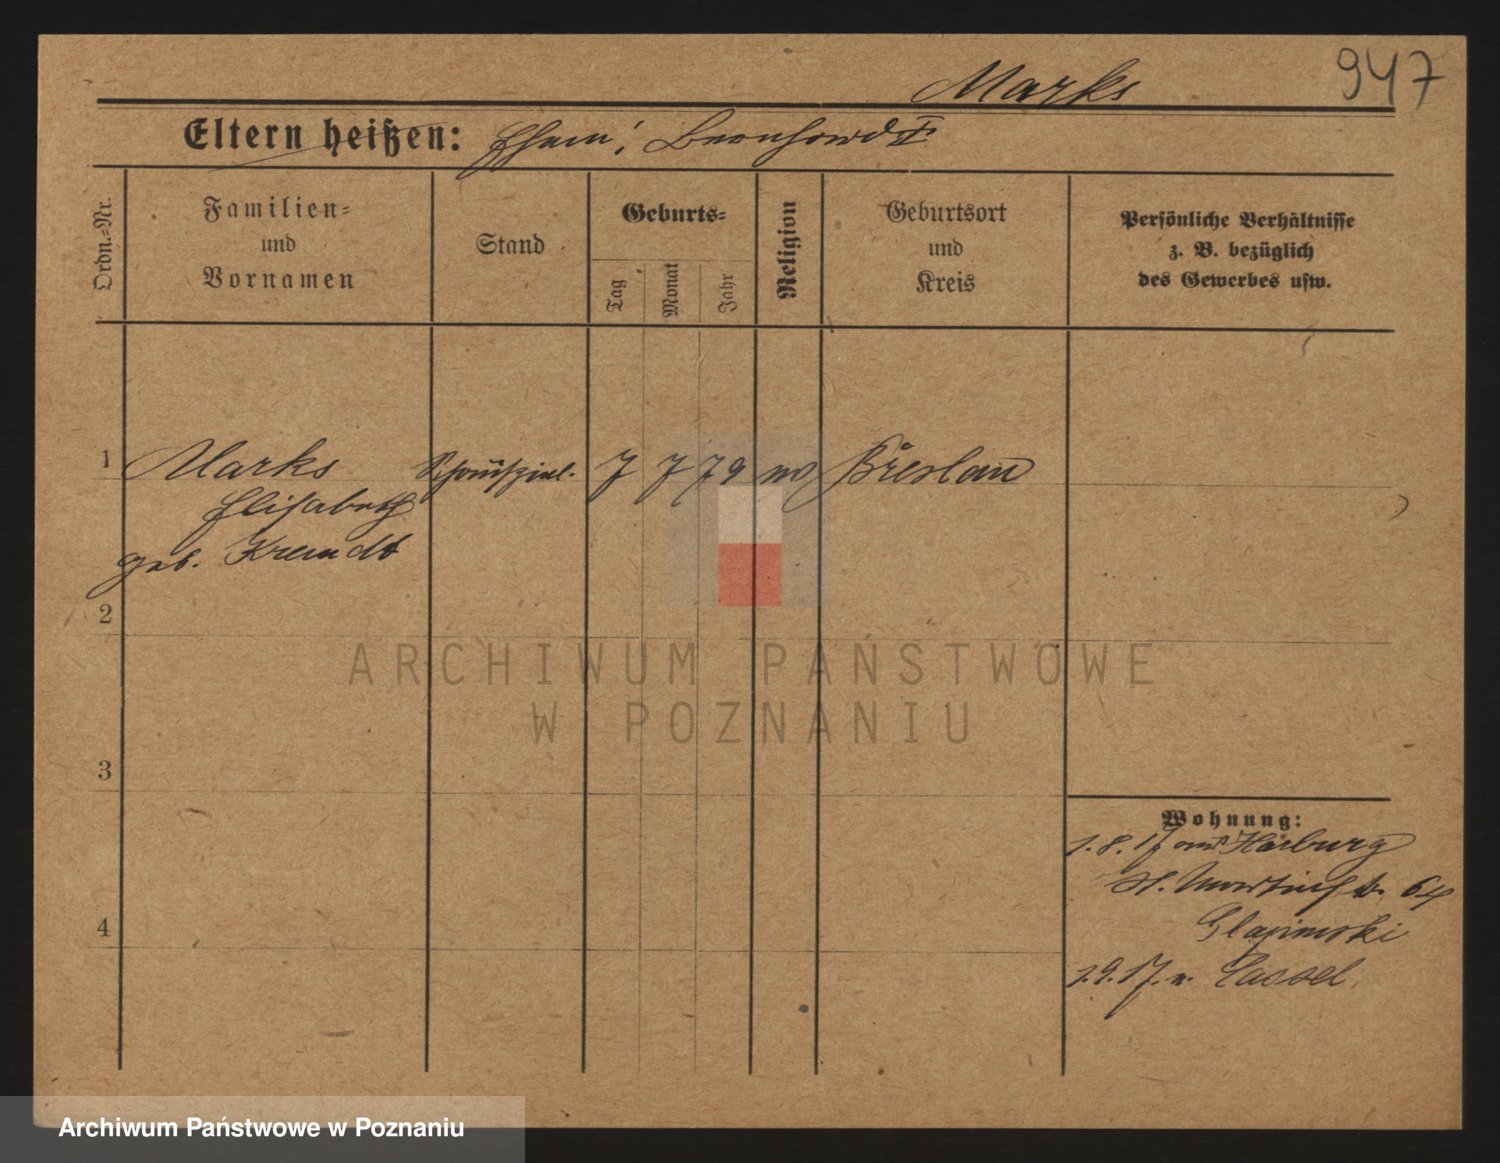 947
Marks
Eltern heißen: Ehem: Bernhard I
Ordn.=Nr.
Familien=
und
Vornamen
Stand
Geburts=
Tag
Monat
Jahr
Religion
Geburtsort
und
Kreis
Persönliche Verhältnisse
z. B. bezüglich
des Gewerbes usw.
1
Marks
Elisabeth
geb.
7 7 79
Breslau
2
ARCHIWUM PAŃSTWOWE
W POZNANIU
3
Wohnung:
1.8.17 aus Harburg
St. Martinstr. 64
4
1.9.17. n. Cassel
Archiwum Państwowe w Poznaniu